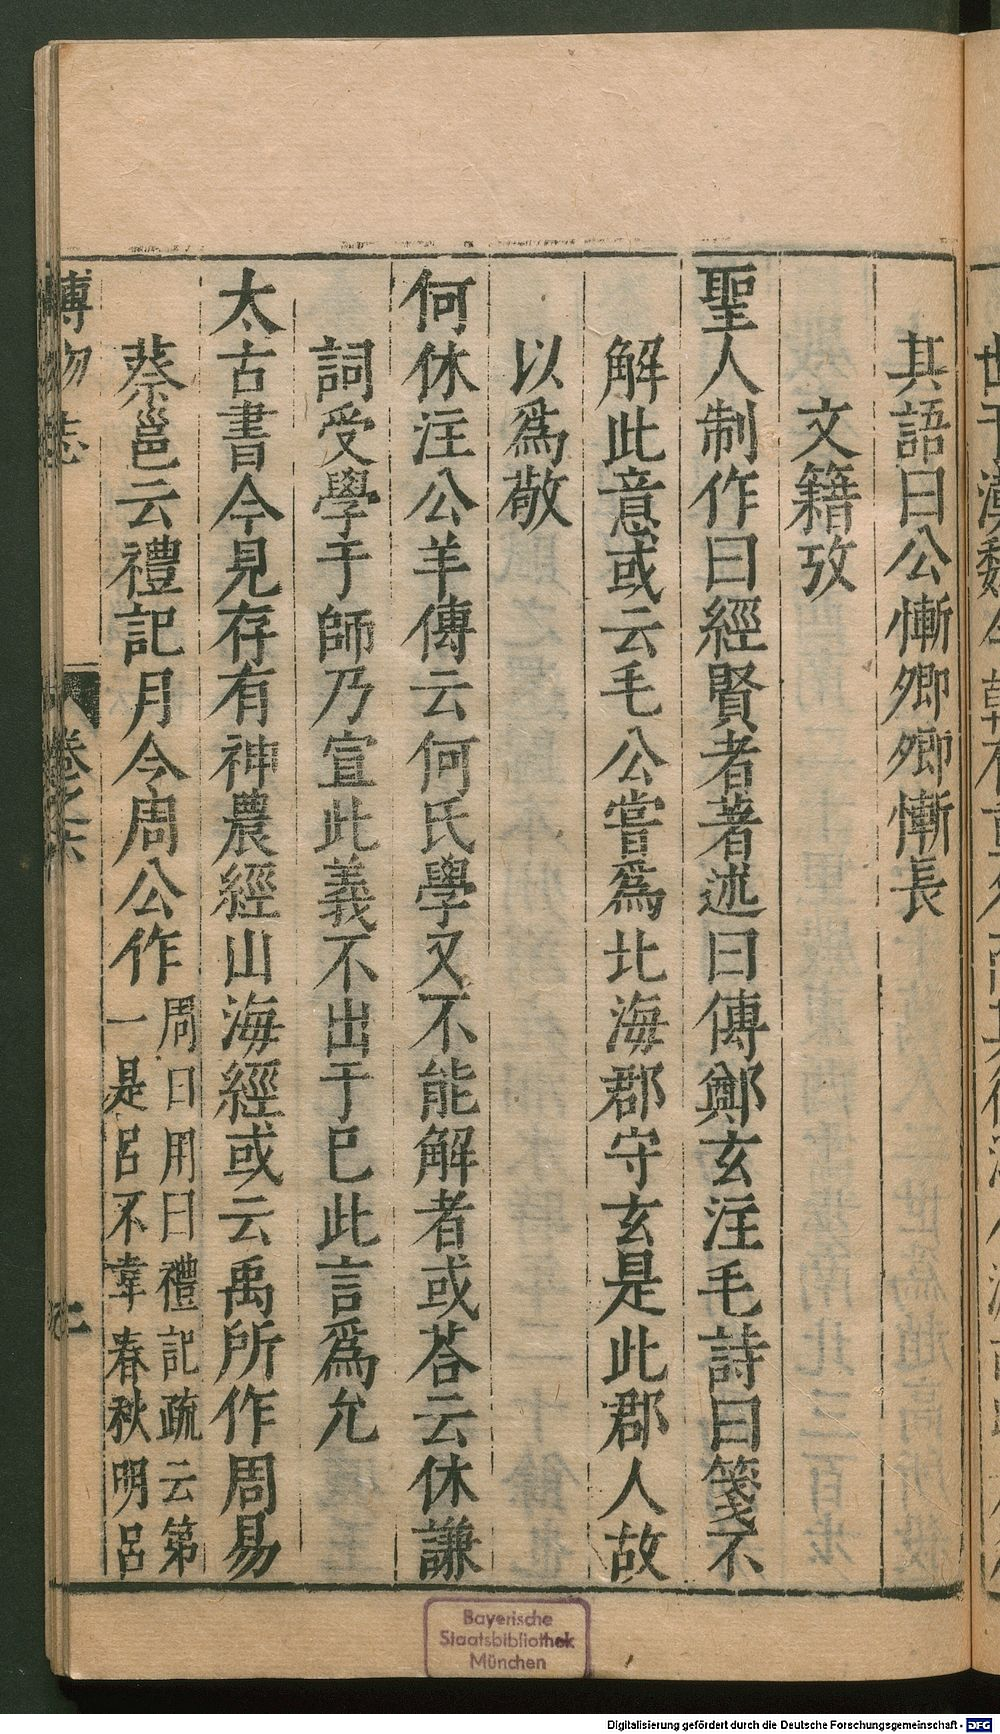 其語曰公慚卿卿慚長
文籍攷
聖人制作曰經賢者著述曰傳鄭玄注毛詩曰箋不
解此意或云毛公嘗爲北海郡守玄是此郡人故
以爲敬
何休注公羊傳云何氏學又不能解者或荅云休謙
詞受學于師乃宣此義不出于巳此言爲允
太古書今見存有神農經山海經或云禹所作周易
蔡邕云禮記月令周公作
周日用曰禮記疏云第
一是呂不韋春秋明呂
博物志
卷之六
二
Bayerische
Staatsbibliothek
München
Digitalisierung gefördert durch die Deutsche Forschungsgemeinschaft - DFG